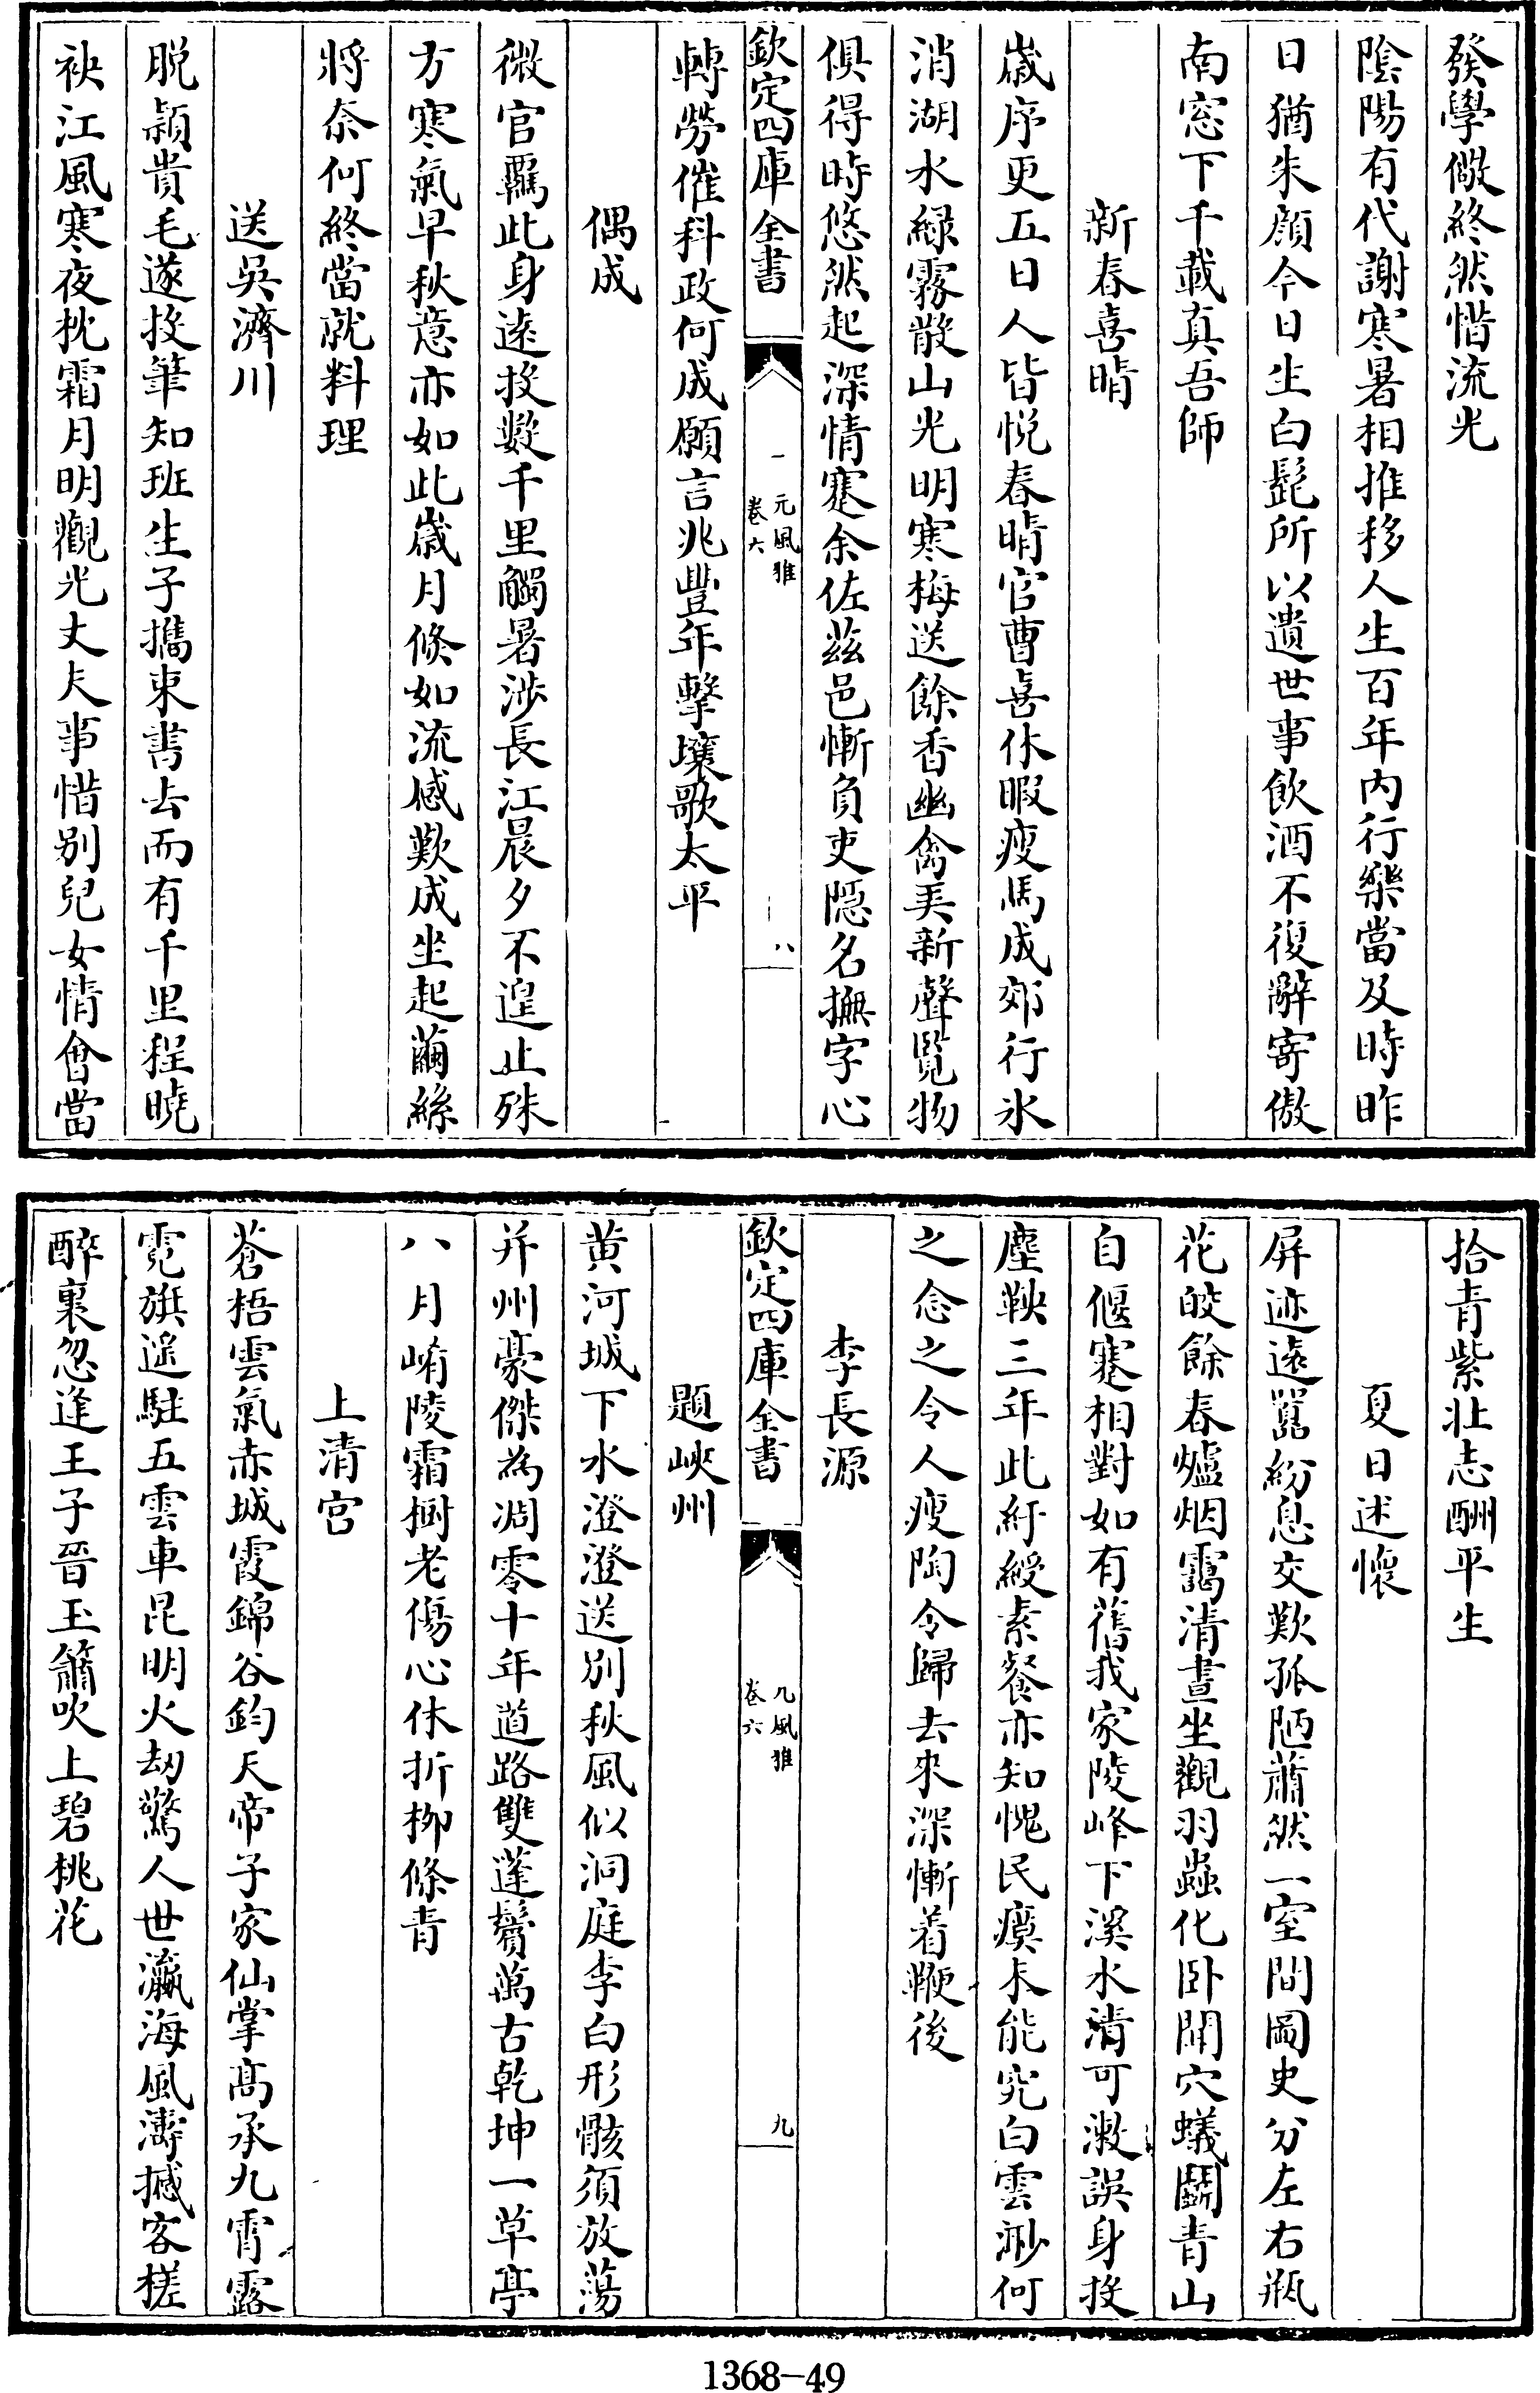 發學儆終然惜流光
陰陽有代謝寒暑相推移人生百年内行樂當及時昨
日猶朱顔今日生白髭所以遺世事飲酒不復辭寄傲
南窓下千載真吾師
新春喜晴
歳序更五日人皆悦春晴官曹喜休暇瘦馬成郊行氷
消湖水緑霧散山光明寒梅送餘香幽禽美新聲覽物
俱得時悠然起深情蹇余佐兹邑慚負吏隠名撫字心
欽定四庫全書
元風雅
卷六
八
轉勞催科政何成願言兆豐年擊壤歌太平
偶成
微官羈此身逺投數千里觸暑涉長江晨夕不遑止殊
方寒氣早秋意亦如此歳月倏如流感歎成坐起繭絲
將奈何終當就料理
送吳濟川
脱穎貴毛遂投筆知班生子攜束書去而有千里程曉
袂江風寒夜枕霜月明觀光丈夫事惜别兒女情會當
拾青紫壯志酬平生
夏日述懷
屏迹逺囂紛息交歎孤陋蕭然一室間圖史分左右瓶
花皎餘春爐烟靄清晝坐觀羽蟲化卧聞穴蟻鬭青山
自偃蹇相對如有舊我家陵峰下溪水清可漱誤身投
塵鞅三年此紆綬素餐亦知愧民瘼未能究白雲渺何
之念之令人瘦陶令歸去來深慚着鞭後
李長源
欽定四庫全書
元風雅
卷六
九
題峽州
黄河城下水澄澄送别秋風似洞庭李白形骸須放蕩
并州豪傑為凋零十年道路雙蓬鬢萬古乾坤一草亭
八月崤陵霜樹老傷心休折栁條青
上清宫
蒼梧雲氣赤城霞錦谷鈞天帝子家仙掌髙承九霄露
霓旗遥駐五雲車昆明火劫驚人世瀛海風濤撼客槎
醉裏忽逢王子晉玉簫吹上碧桃花
1368-49